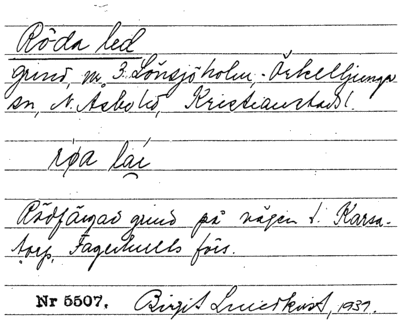 Röda led
grind, nr 3 Lönsjöholm, Örkelljunga
sn, N. Åsbo hd, Kristianstads l.
röa lai
Rödfärgad grind på vägen t. Karsa-
torp, Fagerhults förs.
Nr 5507. Birgit Lundkvist, 1937.